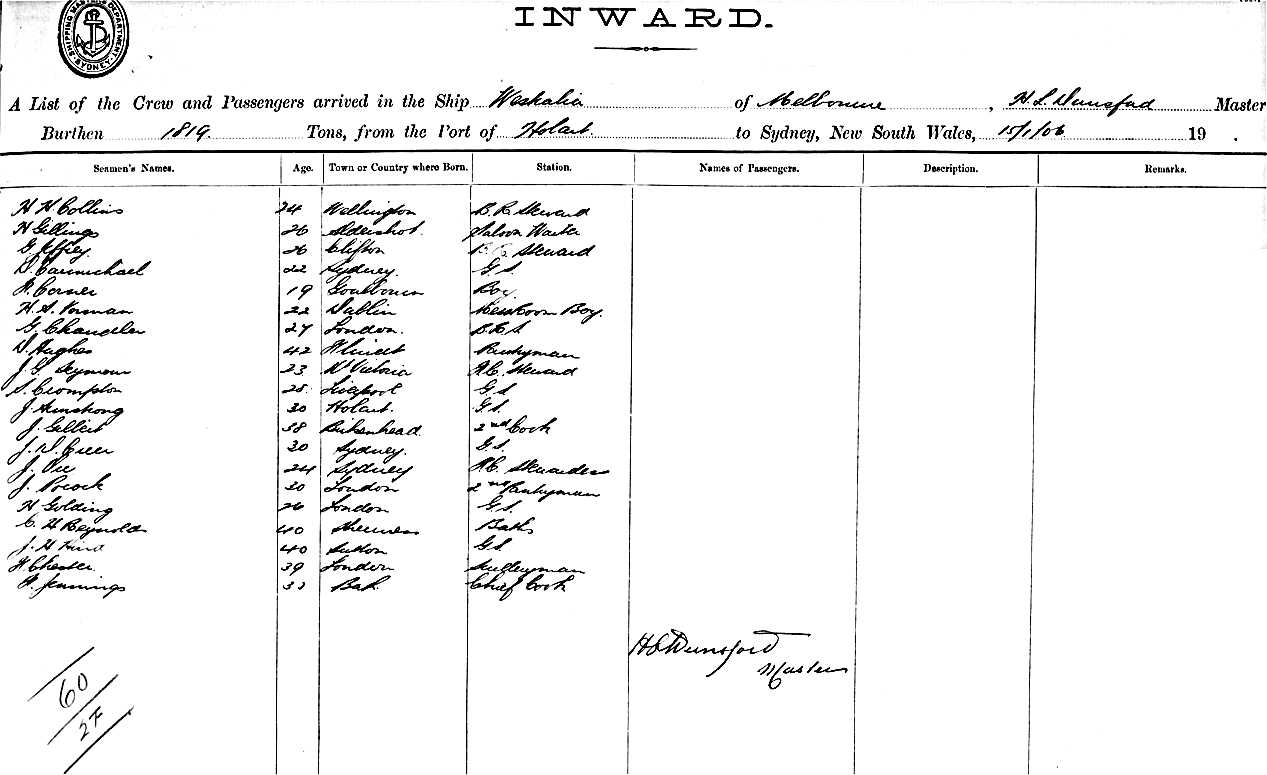 SHIPPING MASTER'S DEPARTMENT SYDNEY
INWARD.
A List of the Crew and Passengers arrived in the Ship Westralia of Melbourne, H. L. Dunsford Master
Burthen 1819 Tons, from the Port of Hobart to Sydney, New South Wales, 15/1/06 19 .
Seamen's Names. Age. Town or Country where Born. Station. Names of Passengers. Description. Remarks.
H H Collins 24 Wellington B. R. Steward
H Gillings 26 Aldershot. Saloon Waiter
G 26 Clifton Steward
D. Carmichael 22 Sydney. G. S.
R. Corner 19 Goulbourn Boy
H. S. Norman 22 Dublin Messroom Boy.
G. Chandler 27 London. B. R. S
D. Hughes 42 Pantryman
J. G. Seymour 23 Victoria R. C. Steward
S. Crompton 28 Liverpool G. S
J. Armstrong 30 Hobart. G. S.
J. Gellert 38 Birkenhead 2nd Cook
J. D. Greer 30 Sydney. G. S.
J. 24 Sydney R. C. Stewardess
J. Pocock 30 London 2nd Pantryman
H Golding 26 London G. S.
C. H Reynolds 40 Sheerness Baths
J. H King 40 Sutton G. S.
H Chester. 39 London Scullery​man
H. Jennings 33 Bath. Chief Cook
H L Dunsford
Master
60
27